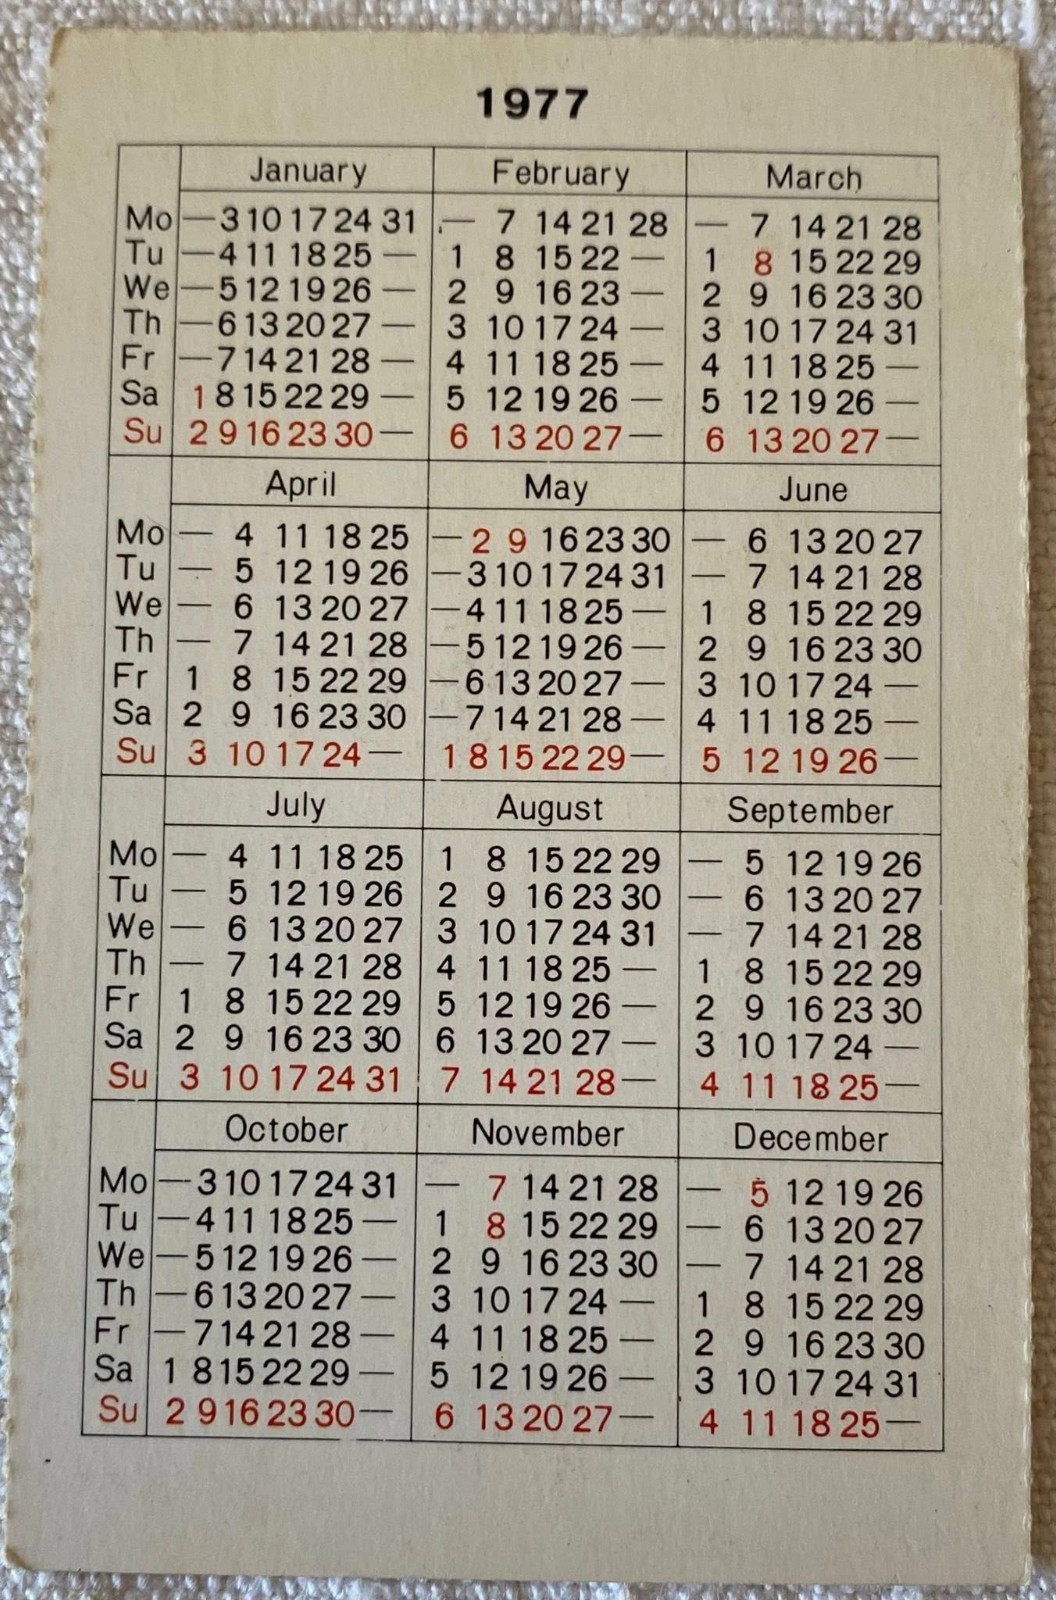 1977
January February March
Mo — 3 10 17 24 31 — 7 14 21 28 — 7 14 21 28
Tu — 4 11 18 25 — 1 8 15 22 — 1 8 15 22 29
We — 5 12 19 26 — 2 9 16 23 — 2 9 16 23 30
Th — 6 13 20 27 — 3 10 17 24 — 3 10 17 24 31
Fr — 7 14 21 28 — 4 11 18 25 — 4 11 18 25 —
Sa 1 8 15 22 29 — 5 12 19 26 — 5 12 19 26 —
Su 2 9 16 23 30 — 6 13 20 27 — 6 13 20 27 —
April May June
Mo — 4 11 18 25 — 2 9 16 23 30 — 6 13 20 27
Tu — 5 12 19 26 — 3 10 17 24 31 — 7 14 21 28
We — 6 13 20 27 — 4 11 18 25 — 1 8 15 22 29
Th — 7 14 21 28 — 5 12 19 26 — 2 9 16 23 30
Fr 1 8 15 22 29 — 6 13 20 27 — 3 10 17 24 —
Sa 2 9 16 23 30 — 7 14 21 28 — 4 11 18 25 —
Su 3 10 17 24 — 1 8 15 22 29 — 5 12 19 26 —
July August September
Mo — 4 11 18 25 1 8 15 22 29 — 5 12 19 26
Tu — 5 12 19 26 2 9 16 23 30 — 6 13 20 27
We — 6 13 20 27 3 10 17 24 31 — 7 14 21 28
Th — 7 14 21 28 4 11 18 25 — 1 8 15 22 29
Fr 1 8 15 22 29 5 12 19 26 — 2 9 16 23 30
Sa 2 9 16 23 30 6 13 20 27 — 3 10 17 24 —
Su 3 10 17 24 31 7 14 21 28 — 4 11 18 25 —
October November December
Mo — 3 10 17 24 31 — 7 14 21 28 — 5 12 19 26
Tu — 4 11 18 25 — 1 8 15 22 29 — 6 13 20 27
We — 5 12 19 26 — 2 9 16 23 30 — 7 14 21 28
Th — 6 13 20 27 — 3 10 17 24 — 1 8 15 22 29
Fr — 7 14 21 28 — 4 11 18 25 — 2 9 16 23 30
Sa 1 8 15 22 29 — 5 12 19 26 — 3 10 17 24 31
Su 2 9 16 23 30 — 6 13 20 27 — 4 11 18 25 —